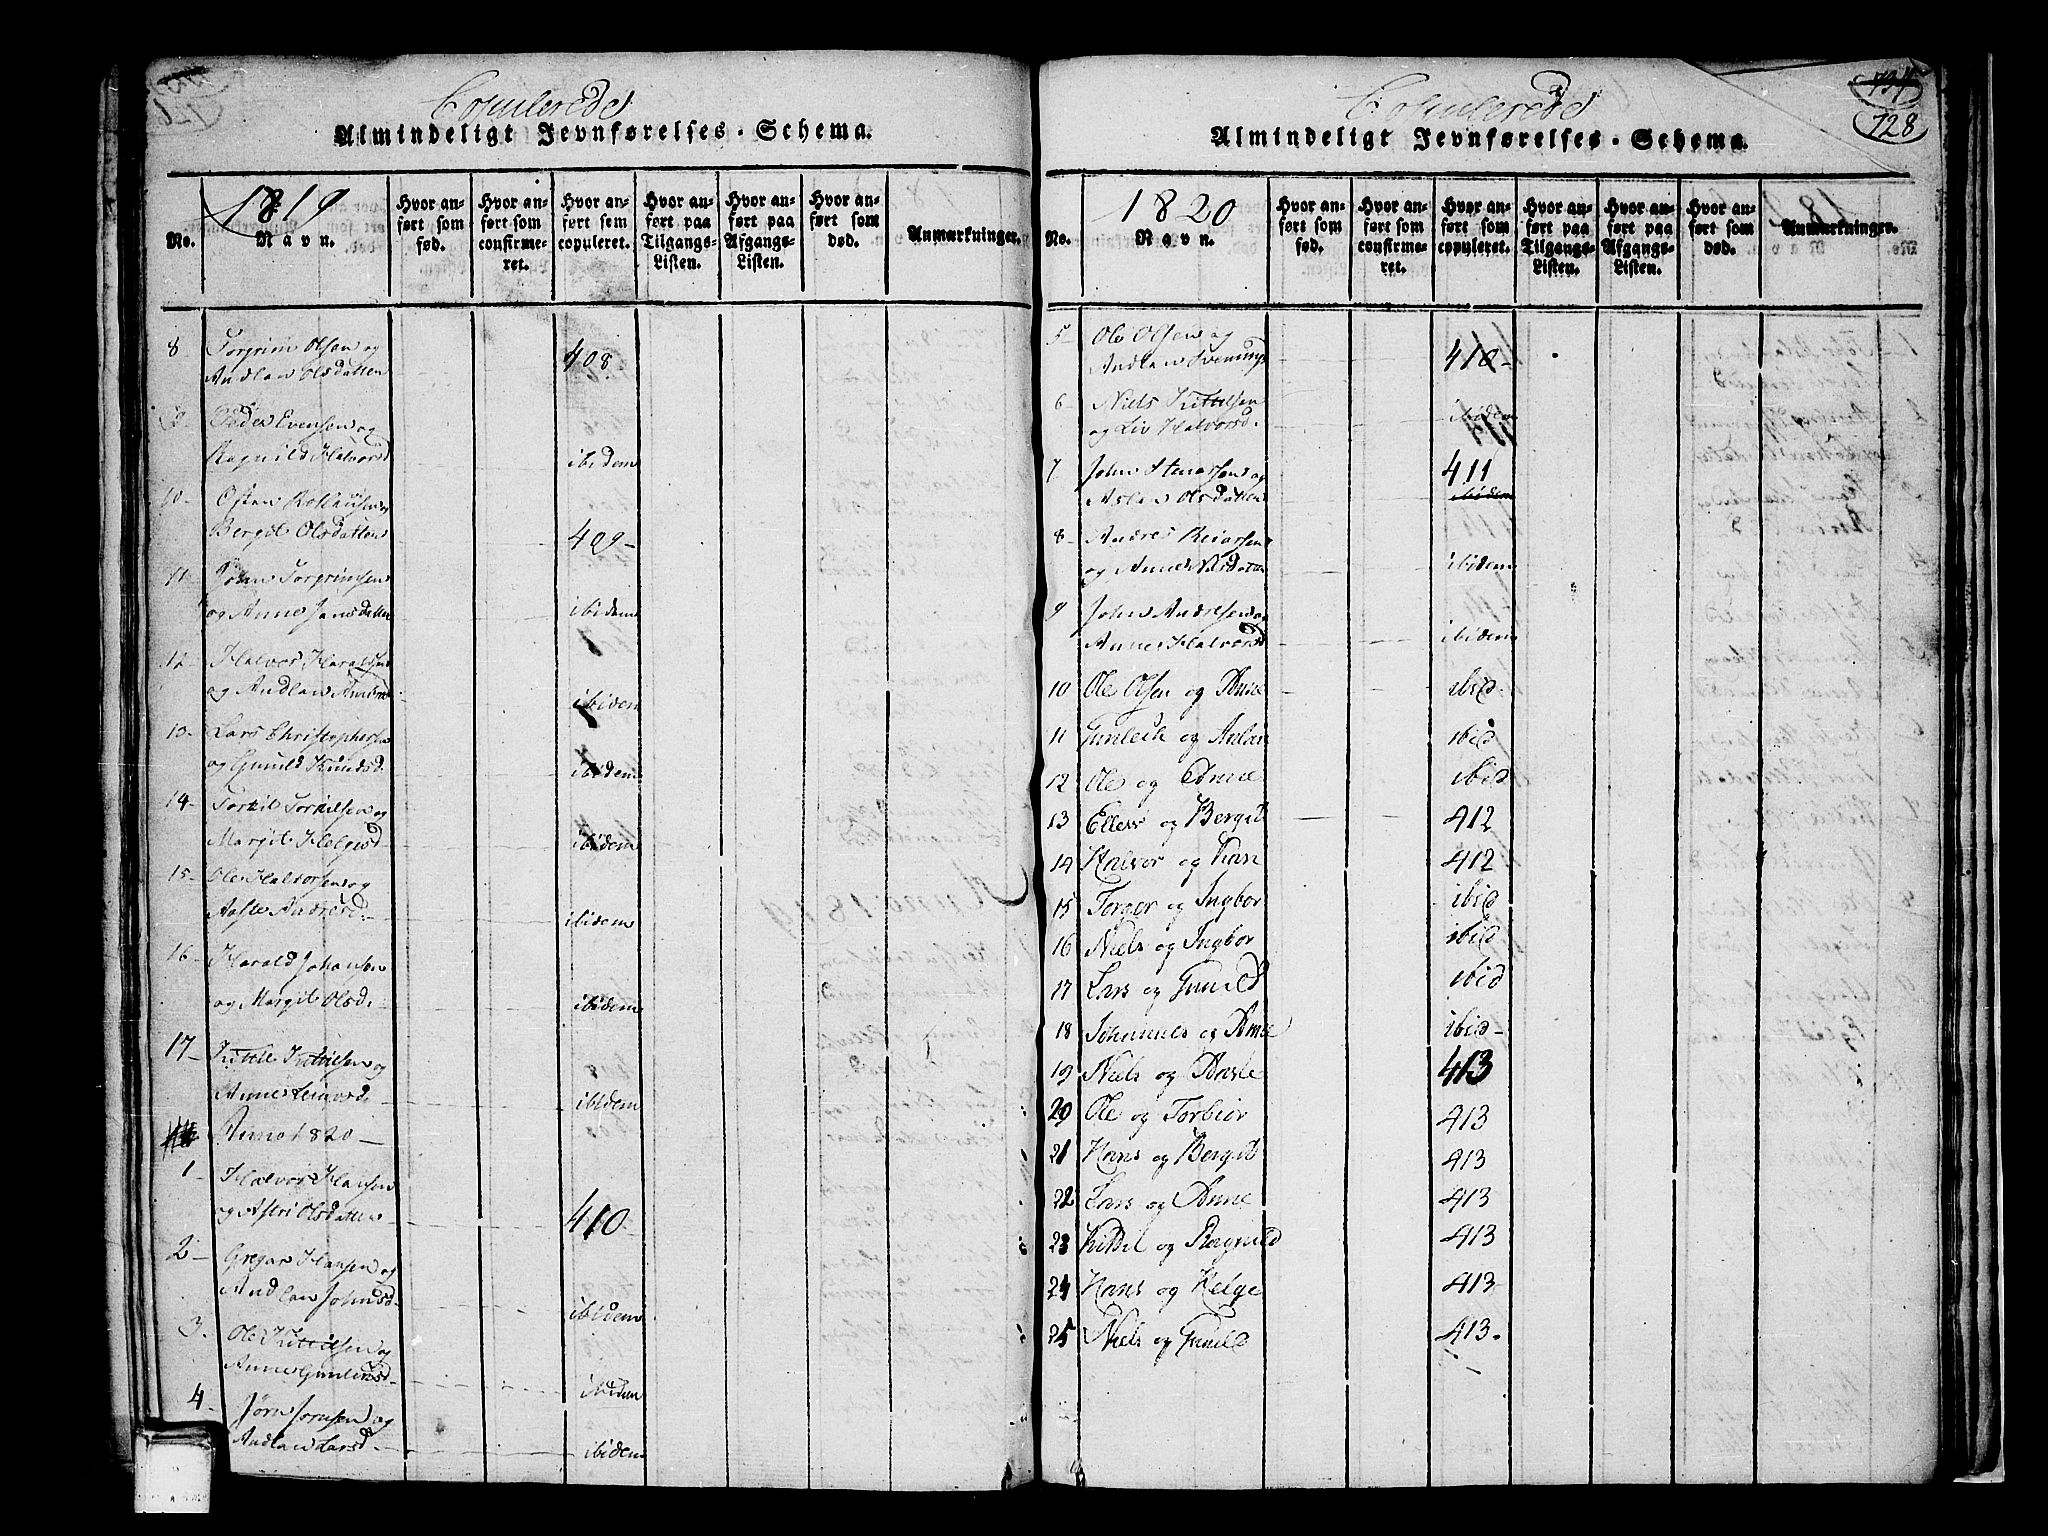 Copulerede
Almindeligt Jevnførelses-Schema.
No.
1819
Navn.
Hvor anført som fød.
Hvor anført som confirmeret.
Hvor anført som copuleret.
Hvor anført paa Tilgangs-Listen.
Hvor anført paa Afgangs-Listen.
Hvor anført som død.
Anmærkninger.
8 Torgrim Olsen og
Andlaw Olsdatten 408
9 Peder Evensen og
Ragnild Halvorsd ibidem
10 Østen
Bergit Olsdatten 409
11 John Torgrimsen
og Anne Jansdatten ibidem
12 Halvor Haraldsen
og Andlaw ibidem
13 Lars Christophersen
og Gunild Knudsd. ibidem
14 Torkil Torkilsen og
Margit Helgesd ibidem
15 Ole Halvorsen og
Aaste Andresd. ibidem
16 Harald Johansen
og Margit Olsd. ibidem
17 Kittil Kittilsen og
Anne ibidem
Anno 1820
1 Halvor Hansen
og Astri Olsdatten 410
2 Gregar Hansen og
Andlaw Johnsd. ibidem
3. Ole Kittilsen og
Anne ibidem
4 Jørn Jornsen og
Andlaw Larsd ibidem
134
128
Copulerede
Almindeligt Jevnførelses-Schema.
No.
1820
Navn.
Hvor anført som fød.
Hvor anført som confirmeret.
Hvor anført som copuleret.
Hvor anført paa Tilgangs-Listen.
Hvor anført paa Afgangs-Listen.
Hvor anført som død.
Anmærkninger.
5 Ole Olsen og
Andlaw Svenungs 410
6 Niels Kittilsen
og Liv Halvorsd. ibidem
7 John og 411
Aslaw Olsdatten ibidem
8 Andres
og Anne ibidem
9 John Andresen og
Anne Halvorsd ibidem
10 Ole Olsen og Anne ibid
11 Gunleik og Anlau ibid
12 Ole og Anne ibid
13 Ellew og Bergit 412
14 Halvor og Kari 412
15 Torger og Ingbor ibid
16 Niels og Ingbor ibid
17 Lars og Gunild ibid
18 Johannes og Anne ibid
19 Niels og Aasle 413
20 Ole og Torbior 413
21 Hans og Bergit 413
22 Lars og Anne 413
23 Kittil og Ragnild 413
24 Hans og Helge 413
25 Niels og Gunild 413